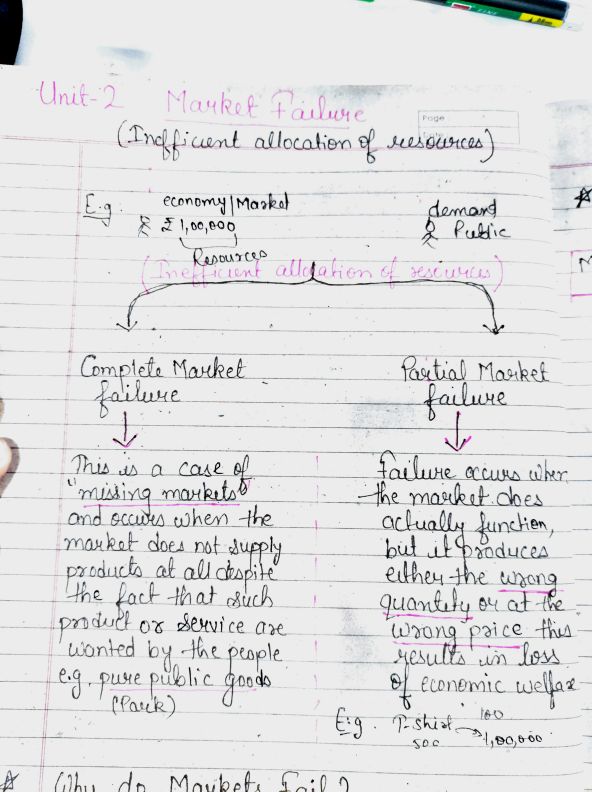 Unit-2 Market Failure
Page
(Inefficient allocation of resources)
E.g. economy/Market demand
₹ 1,00,000 Public
Resources
(Inefficient allocation of resources)
Complete Market
failure
This is a case of
"missing markets"
and occurs when the
market does not supply
products at all despite
the fact that such
product or service are
wanted by the people
e.g. pure public goods
(Park)
Partial Market
failure
Failure occurs when
the market does
actually function,
but it produces
either the wrong
quantity or at the
wrong price this
results in loss
of economic welfare
E.g. T-shirt 100
500 → 1,00,000
Why do Markets Fail?
M